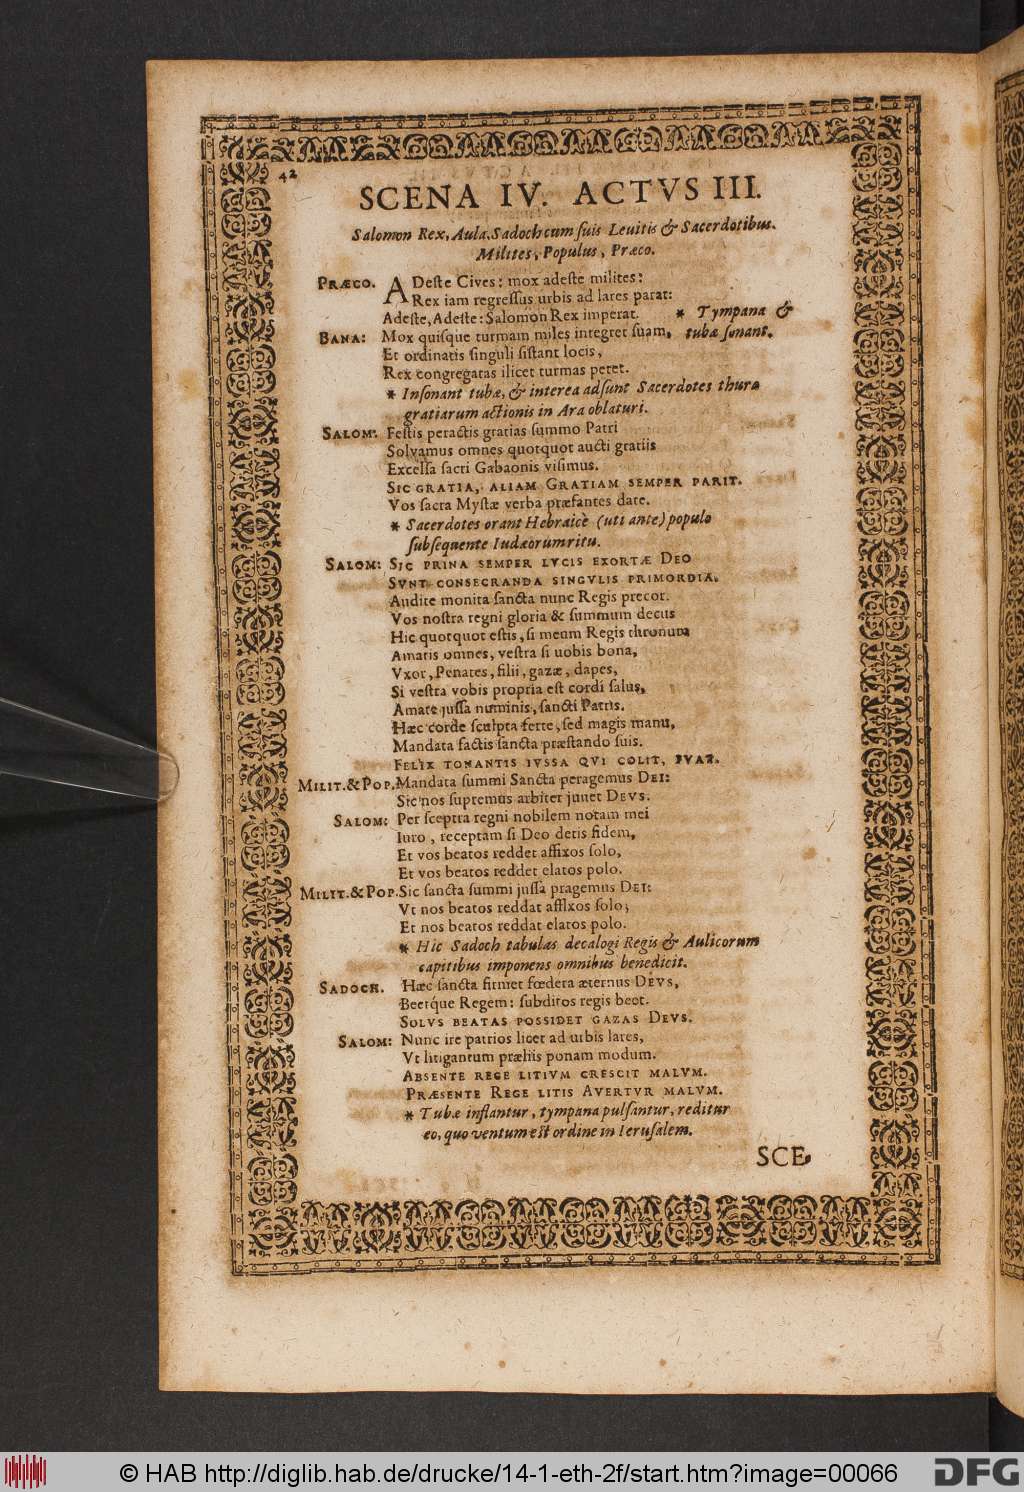 42
SCENA IV. ACTVS III.
Salomon Rex, Aula, Sadoch cum suis Levitis & Sacerdotibus.
Milites, Populus, Præco.
PRÆCO. ADeste Cives: mox adeste milites:
Rex iam regressus urbis ad lares parat:
Adeste, Adeste: Salomon Rex imperat. * Tympana &
BANA: Mox quisque turmam miles integret suam, tubæ sonant.
Et ordinatis singuli sistant locis,
Rex congregatas ilicet turmas petet.
* Insonant tubæ, & interea adsunt Sacerdotes thura
gratiarum actionis in Ara oblaturi.
SALOM: Festis peractis gratias summo Patri
Solvamus omnes quotquot aucti gratiis
Excelsa sacri Gabaonis visimus.
SIC GRATIA, ALIAM GRATIAM SEMPER PARIT.
Vos sacra Mystæ verba præfantes date.
* Sacerdotes orant Hebraicè (uti ante) populo
subsequente Iudæorum ritu.
SALOM: SIC PRINA SEMPER LVCIS EXORTÆ DEO
SVNT CONSECRANDA SINGVLIS PRIMORDIA.
Audite monita sancta nunc Regis precor.
Vos nostra regni gloria & summum decus
Hic quotquot estis, si meum Regis thronum
Amatis omnes, vestra si uobis bona,
Vxor, Penates, filii, gazæ, dapes,
Si vestra vobis propria est cordi salus,
Amate jussa numinis, sancti Patris.
Hæc corde sculpta ferte, sed magis manu,
Mandata factis sancta præstando suis.
FELIX TONANTIS IVSSA QVI COLIT, IVAT.
MILIT.&POP. Mandata summi Sancta peragemus DEI:
Sic nos supremus arbiter juuet DEVS.
SALOM: Per sceptra regni nobilem notam mei
Iuro, receptam si Deo detis fidem,
Et vos beatos reddet affixos solo,
Et vos beatos reddet elatos polo.
MILIT.&POP. Sic sancta summi jussa pragemus DEI:
Vt nos beatos reddat afflxos solo;
Et nos beatos reddat elatos polo.
* Hic Sadoch tabulas decalogi Regis & Aulicorum
capitibus imponens omnibus benedicit.
SADOCH. Hæc sancta firmet fœdera æternus DEVS,
Beetque Regem: subditos regis beet.
SOLVS BEATAS POSSIDET GAZAS DEVS.
SALOM: Nunc ire patrios licet ad urbis lares,
Vt litigantum præliis ponam modum.
ABSENTE REGE LITIVM CRESCIT MALVM.
PRÆSENTE REGE LITIS AVERTVR MALVM.
* Tubæ inflantur, tympana pulsantur, reditur
eo, quo ventum est ordine in Ierusalem.
SCE.
© HAB http://diglib.hab.de/drucke/14-1-eth-2f/start.htm?image=00066
DFG